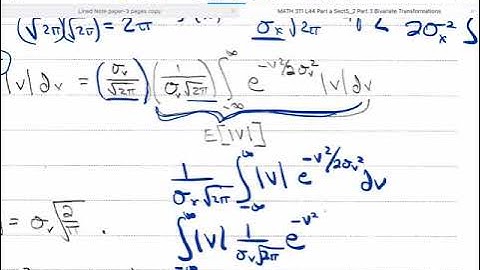 Lined Note paper-3 pages copy
MATH 3TI L44 Part a Sect5_2 Part 3 Bivariate Transformations
(√2π)(√2π) = 2π
σₓ√2π
2σₓ²
|v| dv = (σᵥ/√2π) (1/(σᵥ√2π)) ∫_{-∞}^{∞} e^{-v²/2σᵥ²} |v| dv
E[|v|]
1/(σₓ√2π) ∫_{-∞}^{∞} |v| e^{-v²/2σᵥ²} dv
= σᵥ√(2/π) .
∫_{-∞}^{∞} |v| 1/(σᵥ√2π) e^{-v²}